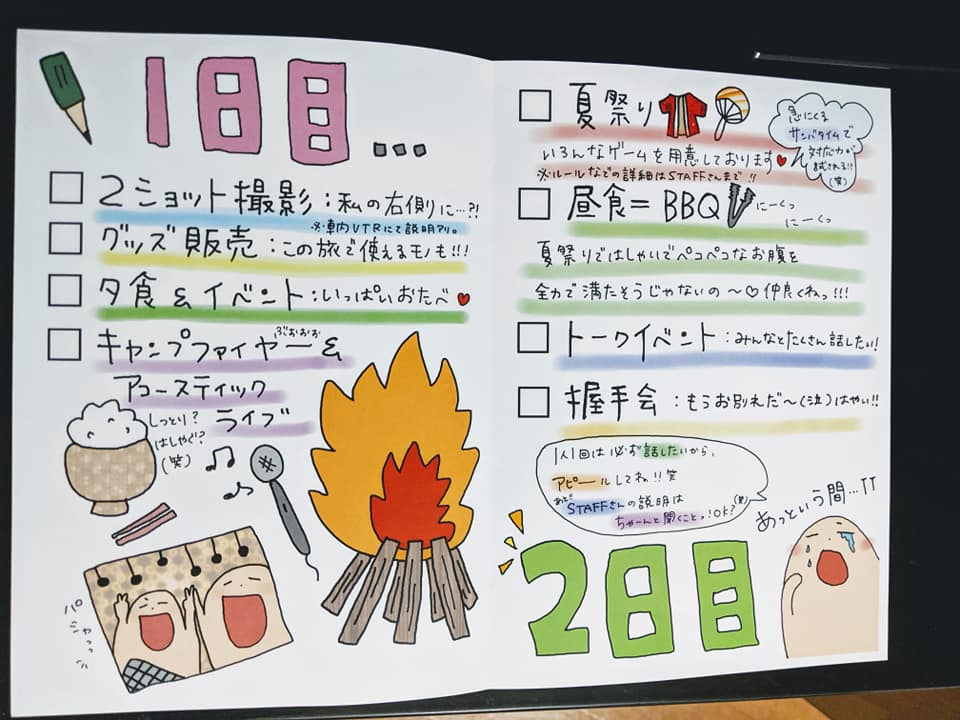 1日目...
2ショット撮影:私の右側に…?!
※車内VTRにて説明アリ。
グッズ販売:この旅で使えるモノも!!!
夕食&イベント:いっぱいおたべ♥
キャンプファイヤー&
ぶおおお
アコースティック
ライブ
しっとり?
はしゃぐ?
(笑)
パシャッッ
夏祭り
いろんなゲームを用意しております♥
※ルールなどの詳細はSTAFFさんまで!!
急にくる
サンバタイムで
対応力が
試される!!
(笑)
昼食=BBQ
にーくっ
にーくっ
夏祭りではしゃいでペコペコなお腹を
全力で満たそうじゃないの〜♡仲良くねっ!!!
トークイベント:みんなとたくさん話したい!
握手会:もうお別れだ〜(泣)はやい!!
1人1回は必ず話したいから、
アピールしてね!!笑
あと
STAFFさんの説明は
ちゃーんと聞くことっ!OK?(笑)
あっという間…TT
2日目